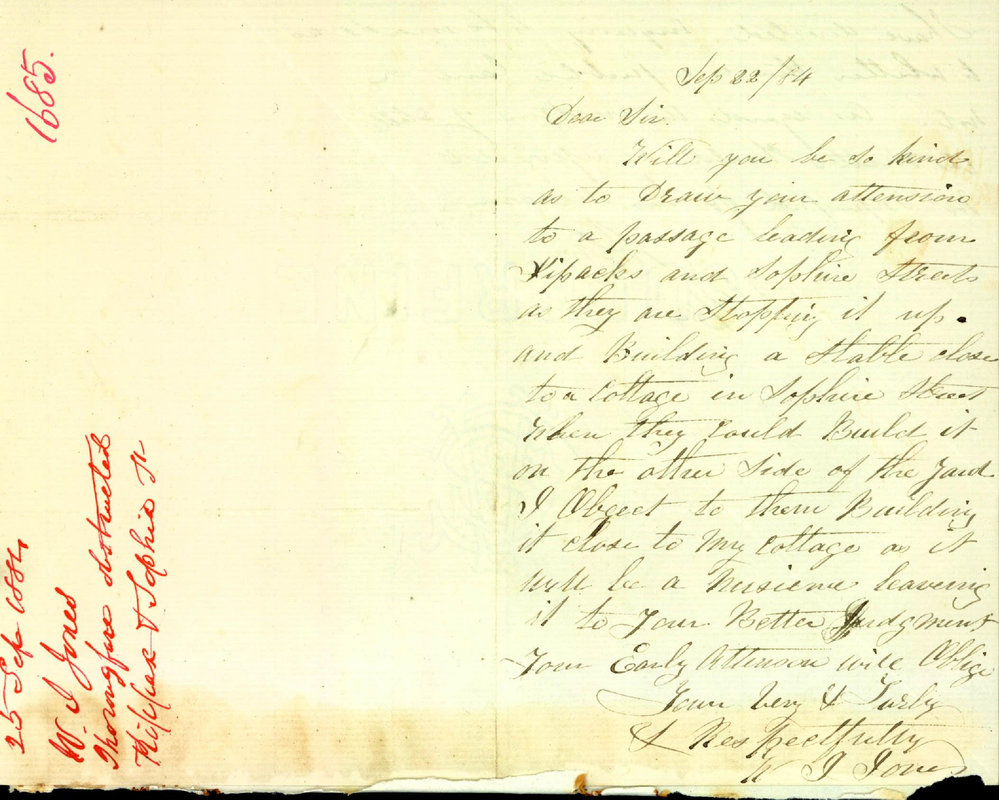 1685.
25 Sep 1884,
W. J Jones
Thoroughfare obstructed
& Sophia St
Sep 22/84
Dear Sir.
Will you be so kind
as to Draw your attension
to a passage leading from
Kipacks and Sophire Streets
as they are Stopping it up.
and Building a Stable close
to a Cottage in Sophire Street
when they Could Build it
on the other Side of the Yard
I Object to them Building
it close to My Cottage as it
will be a leaveing
it to Your Better Judgment
Your Early Attinson will Oblige
Your Very & Turly
& Respectfully
W J Jones